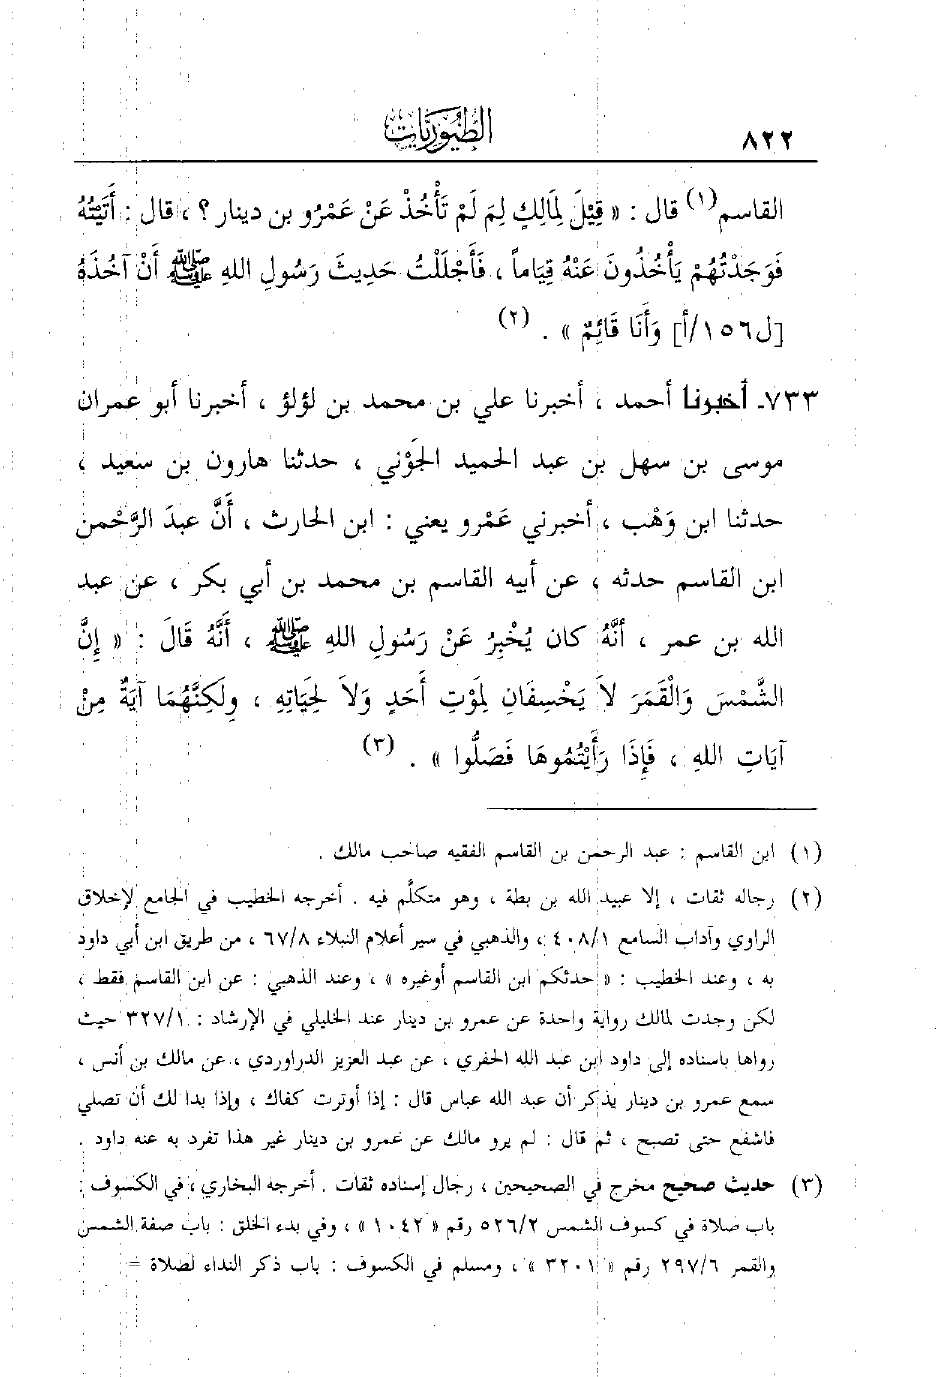 ٨٢٢
الطيوريات
القاسم(١) قال : « قِيْلَ لِمَالِكٍ لِمَ لَمْ تَأْخُذْ عَنْ عَمْرُو بن دينار ؟ ، قال : أَتَيْتُهُ
فَوَجَدْتُهُمْ يَأْخُذُونَ عَنْهُ قِيَاماً ، فَأَجْلَلْتُ حَدِيثَ رَسُولِ اللهِ ﷺ أَنْ آخُذَهُ
[ل١٥٦/أ] وَأَنَا قَائِمٌ » . (٢)
٧٣٣ـ أخبرنا أحمد ، أخبرنا علي بن محمد بن لؤلؤ ، أخبرنا أبو عمران
موسى بن سهل بن عبد الحميد الجَوْني ، حدثنا هارون بن سعيد ،
حدثنا ابن وَهْب ، أخبرني عَمْرو يعني : ابن الحارث ، أَنَّ عبدَ الرَّحْمن
ابن القاسم حدثه ، عن أبيه القاسم بن محمد بن أبي بكر ، عن عبد
الله بن عمر ، أَنَّهُ كان يُخْبِرُ عَنْ رَسُولِ اللهِ ﷺ ، أَنَّهُ قَالَ : « إِنَّ
الشَّمْسَ وَالْقَمَرَ لاَ يَخْسِفَانِ لِمَوْتِ أَحَدٍ وَلاَ لِحَيَاتِهِ ، ولَكِنَّهُمَا آيَةٌ مِنْ
آيَاتِ اللهِ ، فَإِذَا رَأَيْتُمُوهَا فَصَلُّوا » . (٣)
(١) ابن القاسم : عبد الرحمن بن القاسم الفقيه صاحب مالك .
(٢) رجاله ثقات ، إلا عبيد الله بن بطة ، وهو متكلَّم فيه . أخرجه الخطيب في الجامع لإخلاق
الراوي وآداب السامع ٤٠٨/١ ، والذهبي في سير أعلام النبلاء ٦٧/٨ ، من طريق ابن أبي داود
به ، وعند الخطيب : « حدثكم ابن القاسم أوغيره » ، وعند الذهبي : عن ابن القاسم فقط ،
لكن وجدت لمالك رواية واحدة عن عمرو بن دينار عند الخليلي في الإرشاد : ٣٢٧/١ حيث
رواها باسناده إلى داود ابن عبد الله الحفري ، عن عبد العزيز الدراوردي ، عن مالك بن أنس ،
سمع عمرو بن دينار يذكر أن عبد الله عباس قال : إذا أوترت كفاك ، وإذا بدا لك أن تصلي
فاشفع حتى تصبح ، ثم قال : لم يرو مالك عن عمرو بن دينار غير هذا تفرد به عنه داود .
(٣) حديث صحيح مخرج في الصحيحين ، رجال إسناده ثقات . أخرجه البخاري ، في الكسوف :
باب صلاة في كسوف الشمس ٥٢٦/٢ رقم « ١٠٤٢ » ، وفي بدء الخلق : باب صفة الشمس
والقمر ٢٩٧/٦ رقم « ٣٢٠١ » ، ومسلم في الكسوف : باب ذكر النداء لصلاة =